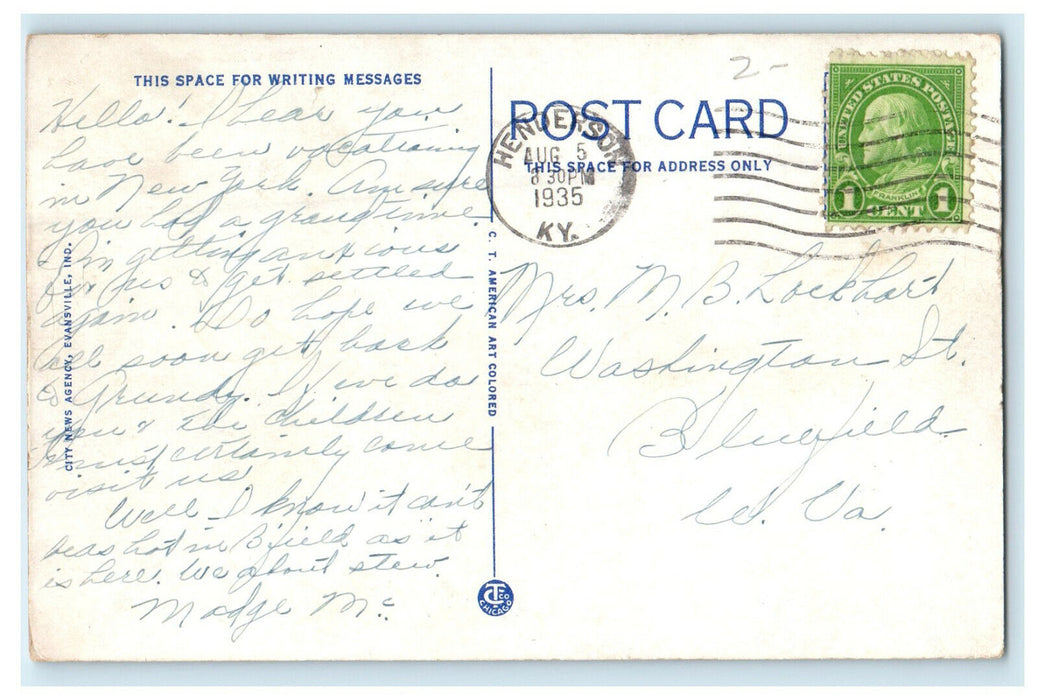 THIS SPACE FOR WRITING MESSAGES
Hello! I hear you
have been vacationing
in New York. Am sure
you had a grand time.
I'm getting anxious
for us to get settled
again. Do hope we
all soon get back
to Grundy. If we do
you & the children
must certainly come
visit us.
Well I know it can't
be as hot in B'field as it
is here. We about stew.
Madge Mc
CITY NEWS AGENCY, EVANSVILLE, IND.
C. T. AMERICAN ART COLORED
CTCO CHICAGO
2-
POST CARD
THIS SPACE FOR ADDRESS ONLY
HENDERSON
AUG 5
8 30PM
1935
KY.
UNITED STATES POSTAGE
FRANKLIN
1 CENT 1
Mrs. M. B. Lockhart
Washington St.
Bluefield
W. Va.